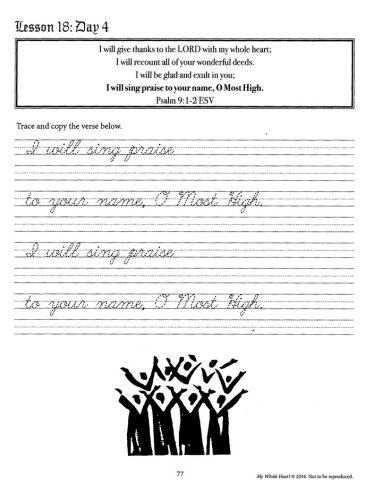 Lesson 18: Day 4
I will give thanks to the LORD with my whole heart;
I will recount all of your wonderful deeds.
I will be glad and exult in you;
I will sing praise to your name, O Most High.
Psalm 9:1-2 ESV
Trace and copy the verse below.
I will sing praise
to your name, O Most High.
I will sing praise
to your name, O Most High.
77
My Whole Heart © 2016 Not to be reproduced.